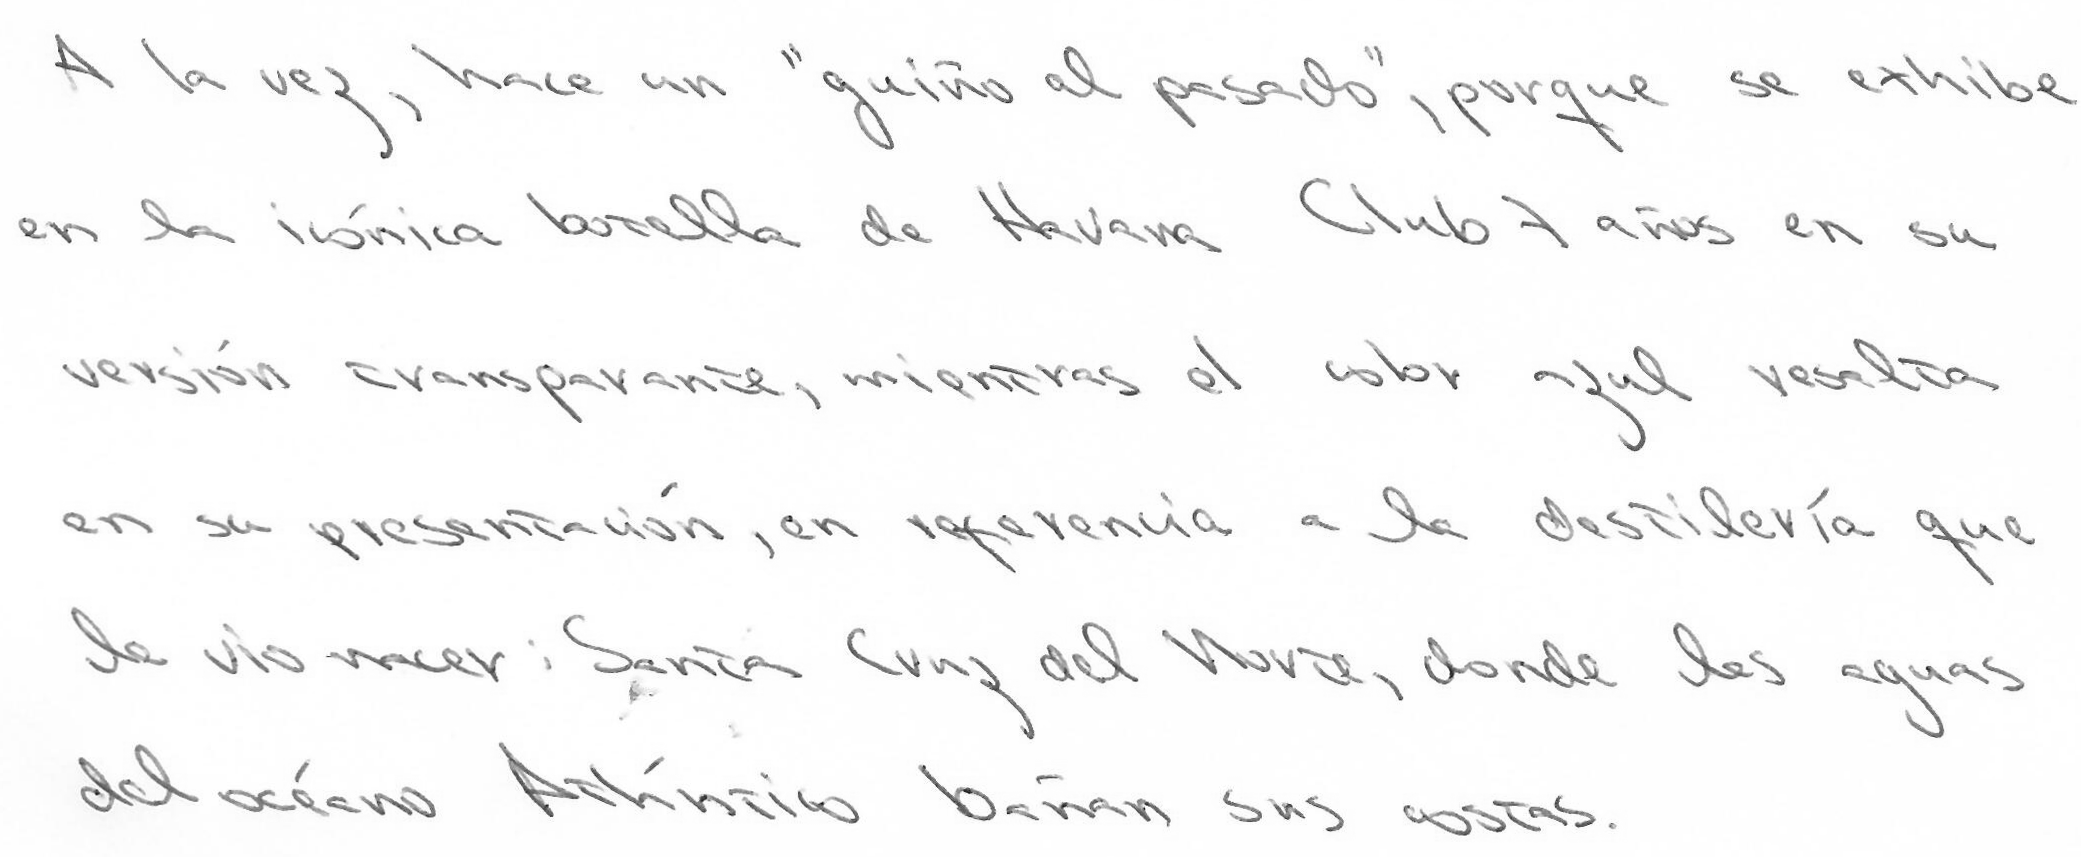 A la vez, hace un "guiño al pasado", porque se exhibe
en la icónica botella de Havana Club 7 años en su
versión transparante, mientras el color azul resalta
en su presentación, en referencia a la destilería que
la vio nacer: Santa Cruz del Norte, donde las aguas
del océano Atlántico bañan sus costas.